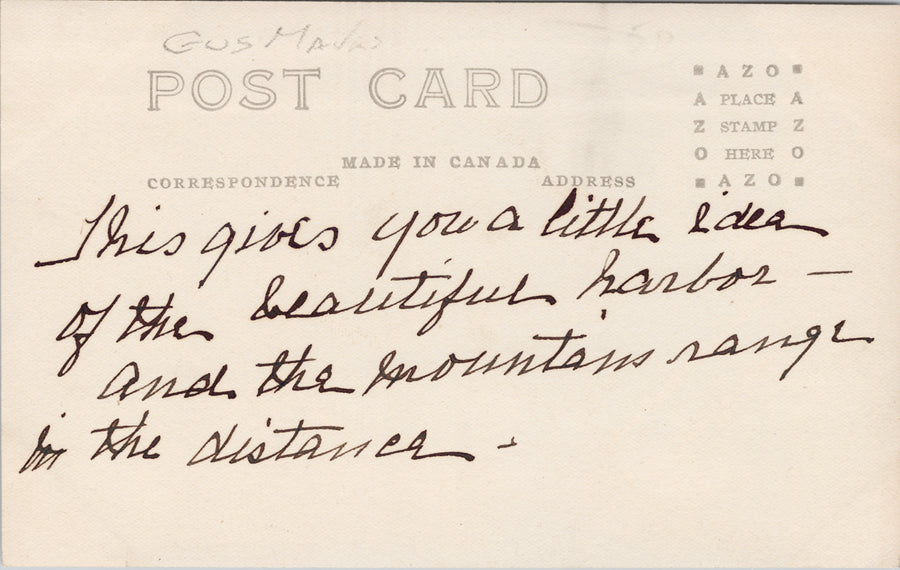 Gus
POST CARD
MADE IN CANADA
CORRESPONDENCE
ADDRESS
AZO
A PLACE A
Z STAMP Z
O HERE O
AZO
This gives you a little idea
of the beautiful harbor —
and the mountains range
in the distance -